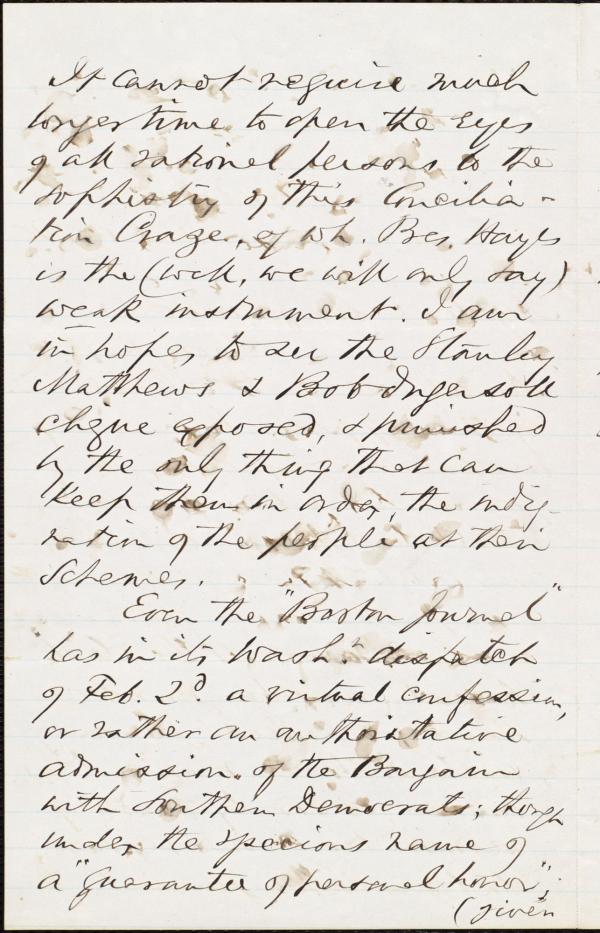 It cannot require much
longer time to open the eyes
of all rational persons to the
sophistry of this Concilia-
tion Craze, of wh. Pres. Hayes
is the (well, we will only say)
weak instrument. I am
in hopes to see the Stanley
Matthews & Bob Ingersoll
clique exposed, & punished
by the only thing that can
keep them in order, the indig-
nation of the people at their
Schemes.
Even the "Boston Journal"
has in its Wash.n dispatch
of Feb. 2d. a virtual confession,
or rather an authoritative
admission of the Bargain
with Southern Democrats; though
under the specious name of
a "Guarantee of personal honor";
(given